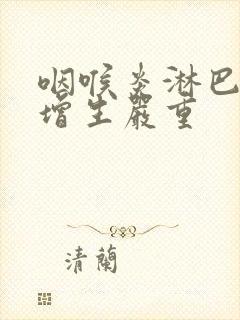 咽喉炎淋巴
增生嚴重
清蘭